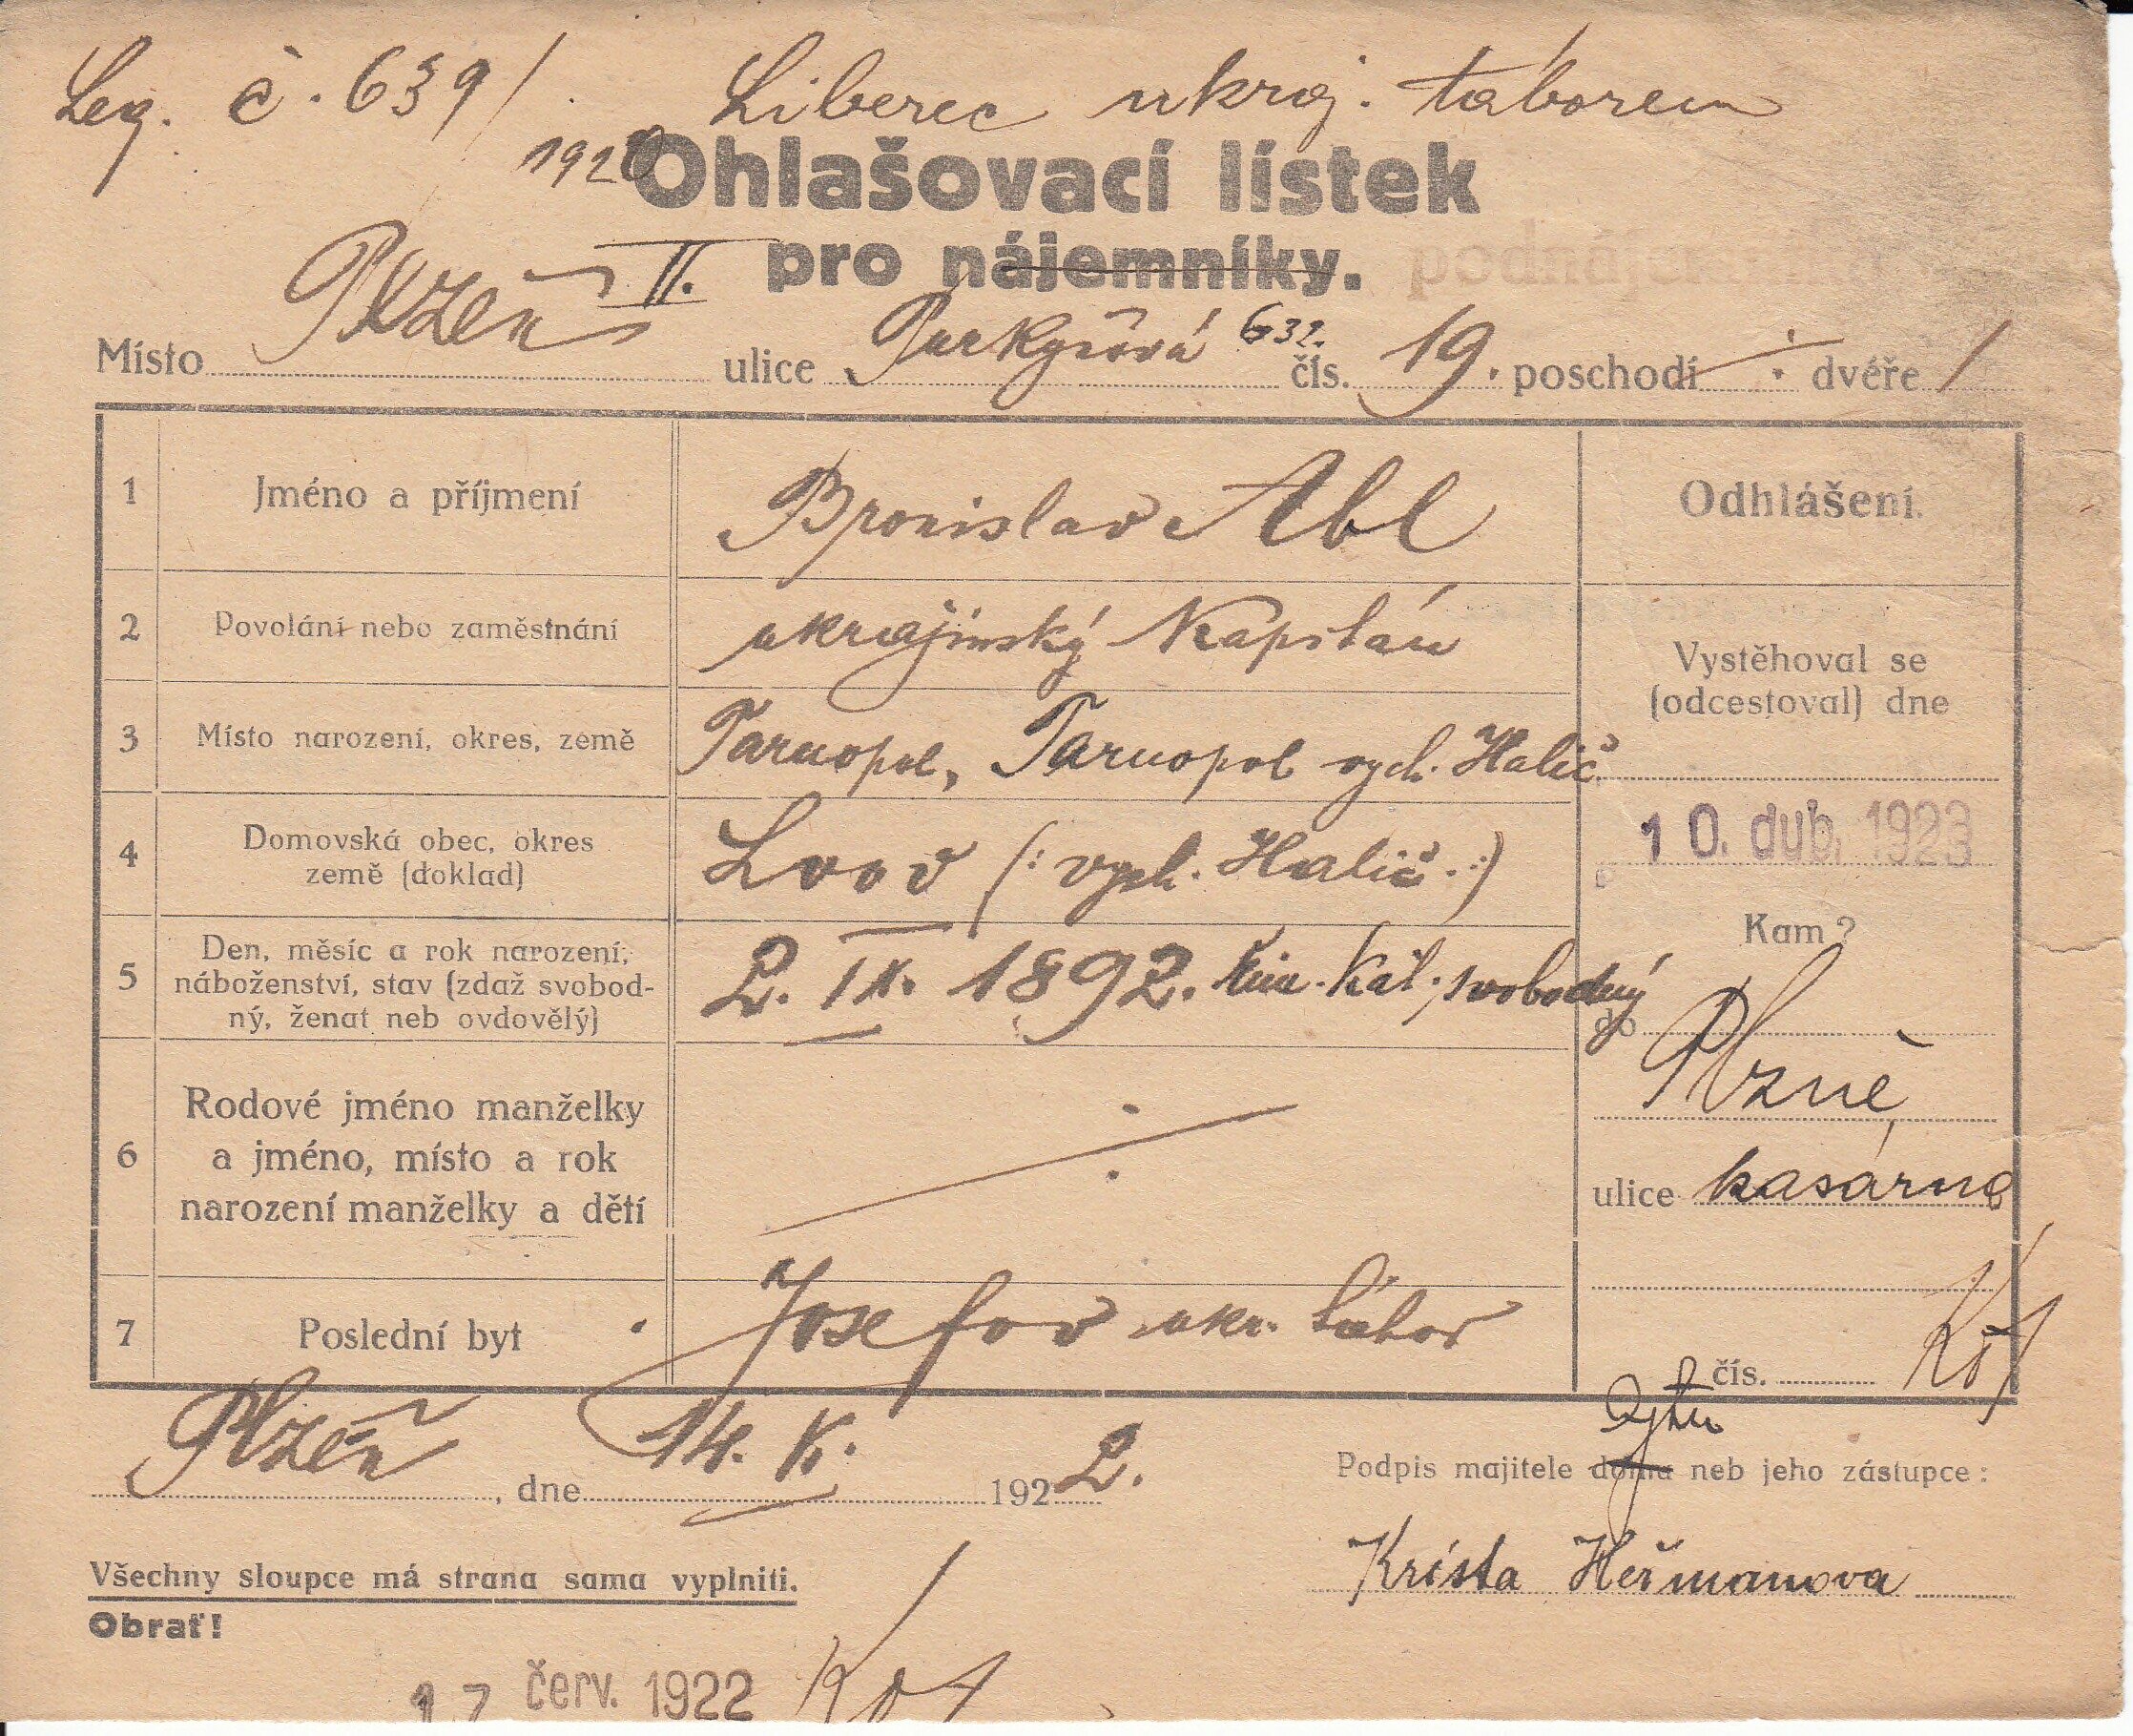 Leg. č. 639/1920 Liberec ukraj. táborem
Ohlašovací lístek
pro nájemníky. podnájemníky
Místo Plzeň II. ulice Purkyňová 632. čís. 19. poschodí ·/· dvéře 1
1 Jméno a příjmení Bronislav Abl
Odhlášení.
2 Povolání nebo zaměstnání ukrajinský Kapitán
Vystěhoval se
(odcestoval) dne
3 Místo narození, okres, země Tarnopol, Tarnopol vých. Halič
10. dub. 1923
4 Domovská obec, okres
země (doklad) Lvov (: vých. Halič :)
Kam?
5 Den, měsíc a rok narození,
náboženství, stav (zdaž svobod-
ný, ženat neb ovdovělý) 2. IX. 1892. řím. kat. svobodný
do Plzně
6 Rodové jméno manželky
a jméno, místo a rok
narození manželky a dětí ·/·
ulice kasárna
7 Poslední byt Josefov ukr. tábor
čís.
Plzeň, dne 14. V. 1922.
Podpis majitele domu bytu neb jeho zástupce:
Krista Heřmanova
Všechny sloupce má strana sama vyplniti.
Obrať!
17 červ. 1922